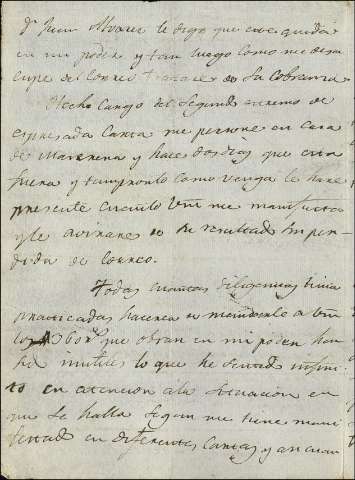 Dn Juan Alvarez le digo que este queda
en mi poder y tan luego como me deso
cupe del Correo tratare de la Cobranza
Hecho Cargo del Segundo extremo de
espresada Carta me persone en casa
de y hace dos dias que esta
fuera y tan pronto como venga le hare
presente cuanto Vm me manifiesta
y le avisare de su resultado sin per
dida de Correo.
Todas cuantas diligencias tiene
practicadas hacerca de a Vm
los que obran en mi poder han
sido inutiles lo que he sentido infini
to en atencion a la Situacion en
que se halla Segun me tiene mani
festado en diferentes Cartas y